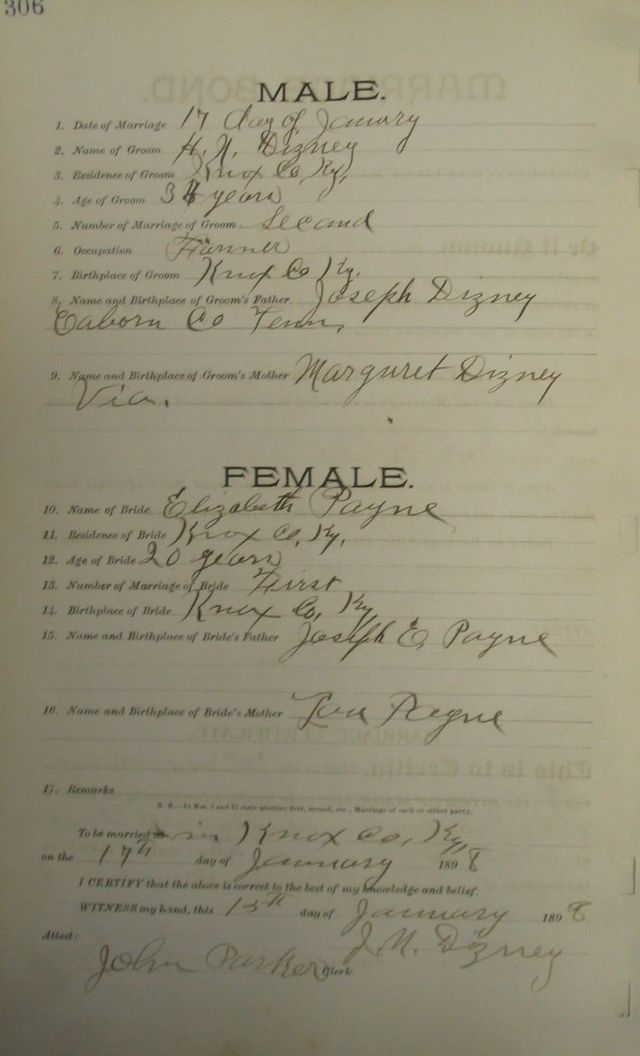 306
MALE.
1. Date of Marriage 17 day of January
2. Name of Groom H. N. Dizney
3. Residence of Groom Knox Co Ky,
4. Age of Groom 34 years
5. Number of Marriage of Groom Second
6. Occupation Farmer
7. Birthplace of Groom Knox Co Ky.
8. Name and Birthplace of Groom's Father Joseph Dizney
Caborn Co Tenn,
9. Name and Birthplace of Groom's Mother Marguret Dizney
Via.
FEMALE.
10. Name of Bride Elizabeth Payne
11. Residence of Bride Knox Co, Ky,
12. Age of Bride 20 years
13. Number of Marriage of Bride First
14. Birthplace of Bride Knox Co, Ky
15. Name and Birthplace of Bride's Father Joseph E, Payne
16. Name and Birthplace of Bride's Mother Payne
17. Remarks
N. B.—At Nos 5 and 13 state whether first, second, etc., Marriage of each or either party.
To be married in Knox Co, Ky,
on the 17th day of January 1898
I CERTIFY that the above is correct to the best of my knowledge and belief.
WITNESS my hand, this 15th day of January 1898
Attest: Dizney
John Parker Clerk